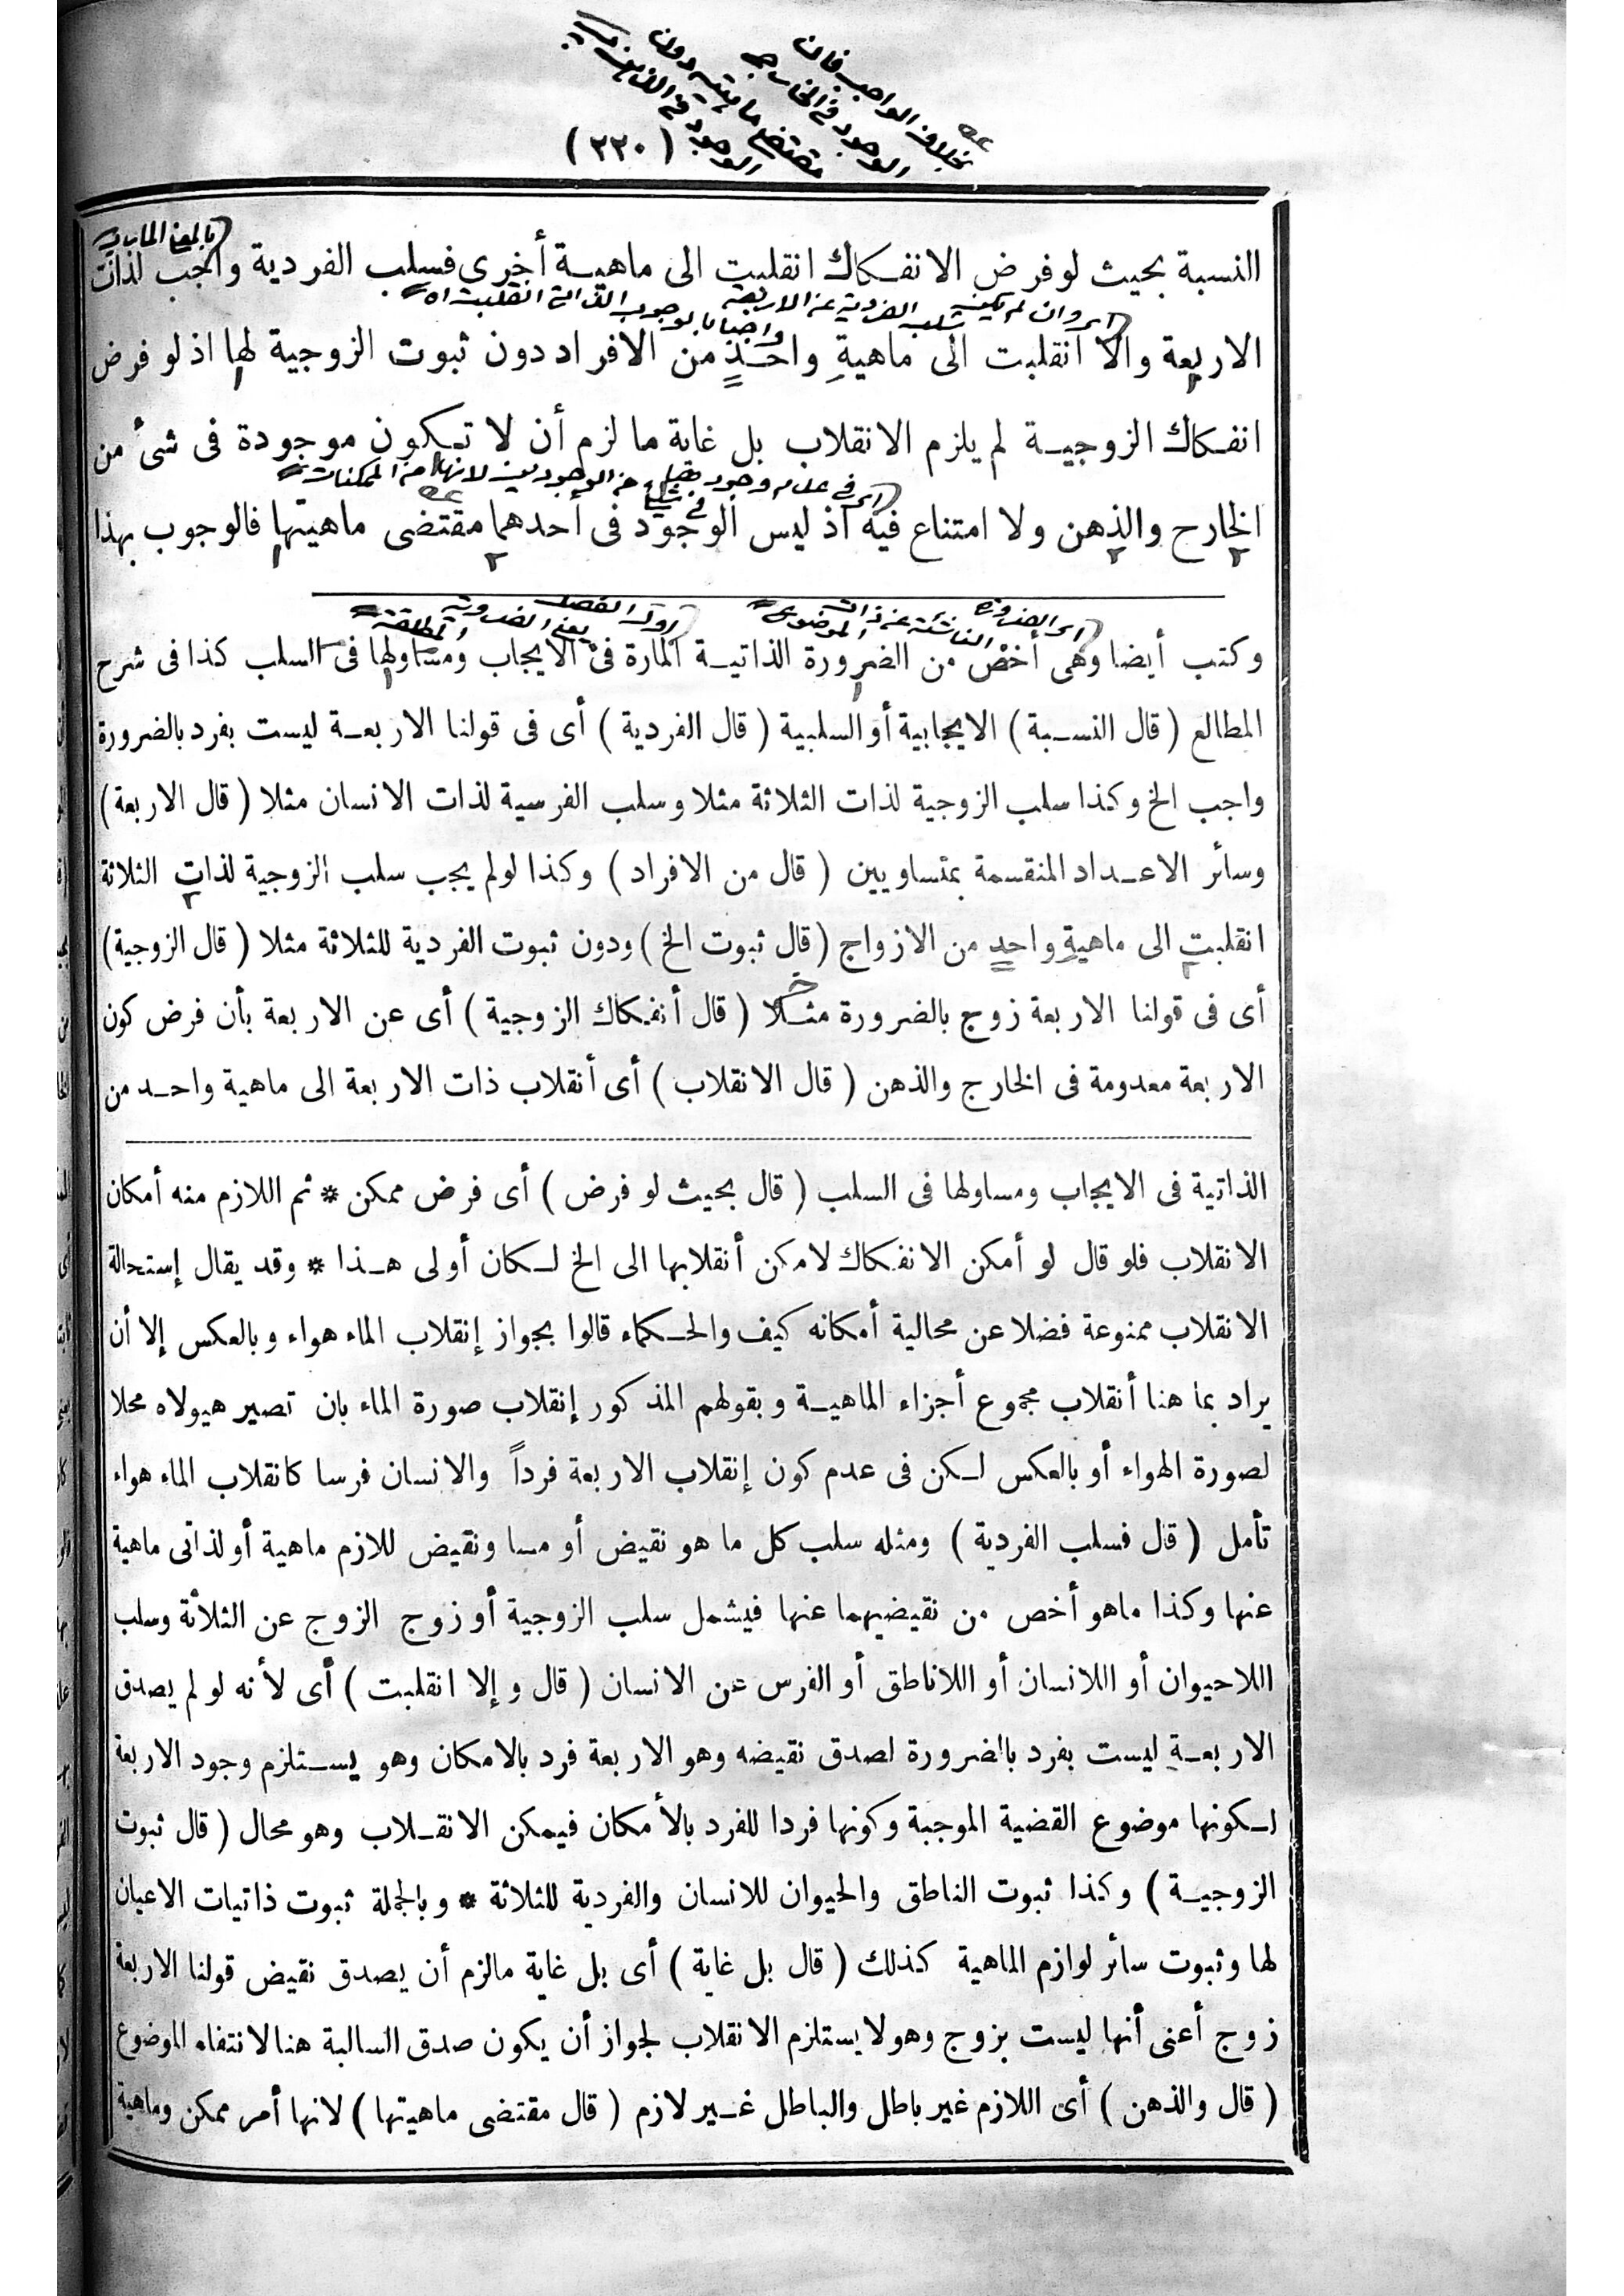 بخلاف الواجب فان
الوجود فى الخارج
مقتضى ماهيته دون
الوجود فى الذهن
(٢٢٠)
بالمعنى المار
النسبة بحيث لو فرض الانفكاك انقلبت الى ماهية أخرى فسلب الفردية واجب لذات
اى وان لم يكن سلب الفردية عن الاربعة واجبا بالوجوب الذاتى انقلبت اه
الاربعة والا انقلبت الى ماهيةِ واحدٍ من الافراد دون ثبوت الزوجية لها اذ لو فرض
انفكاك الزوجية لم يلزم الانقلاب بل غاية ما لزم أن لا تكون موجودة فى شئ من
اى فى عدم وجودها فى شئ من الوجودين لانها من الممكنات
الخارج والذهن ولا امتناع فيه اذ ليس الوجود فى أحدهما مقتضى ماهيتها فالوجوب بهذا
اى الضرورة الناشئة عن ذات الموضوع
اول الفصل
يعنى الضرورية المطلقة
وكتب أيضا وهى أخص من الضرورة الذاتية المارة فى الايجاب ومساولها فى السلب كذا فى شرح
المطالع ( قال النسبة ) الايجابية أو السلبية ( قال الفردية ) أى فى قولنا الاربعة ليست بفرد بالضرورة
واجب الخ وكذا سلب الزوجية لذات الثلاثة مثلا وسلب الفرسية لذات الانسان مثلا ( قال الاربعة )
وسائر الاعداد المنقسمة بمتساويين ( قال من الافراد ) وكذا لو لم يجب سلب الزوجية لذات الثلاثة
انقلبت الى ماهيةِ واحدٍ من الازواج ( قال ثبوت الخ ) ودون ثبوت الفردية للثلاثة مثلا ( قال الزوجية )
أى فى قولنا الاربعة زوج بالضرورة مثلا ( قال أنفكاك الزوجية ) أى عن الاربعة بأن فرض كون
الاربعة معدومة فى الخارج والذهن ( قال الانقلاب ) أى أنقلاب ذات الاربعة الى ماهية واحد من
الذاتية فى الايجاب ومساولها فى السلب ( قال بحيث لو فرض ) أى فرض ممكن * ثم اللازم منه أمكان
الانقلاب فلو قال لو أمكن الانفكاك لامكن أنقلابها الى الخ لكان أولى هذا * وقد يقال إستحالة
الانقلاب ممنوعة فضلا عن محالية أمكانه كيف والحكماء قالوا بجواز إنقلاب الماء هواء وبالعكس إلا أن
يراد بما هنا أنقلاب مجموع أجزاء الماهية وبقولهم المذكور إنقلاب صورة الماء بان تصير هيولاه محلا
لصورة الهواء أو بالعكس لكن فى عدم كون إنقلاب الاربعة فرداً والانسان فرسا كانقلاب الماء هواء
تأمل ( قال فسلب الفردية ) ومثله سلب كل ما هو نقيض أو مسا ونقيض للازم ماهية أو لذاتى ماهية
عنها وكذا ماهو أخص من نقيضيهما عنها فيشمل سلب الزوجية أو زوج الزوج عن الثلاثة وسلب
اللاحيوان أو اللانسان أو اللاناطق أو الفرس عن الانسان ( قال و إلا انقلبت ) أى لأنه لو لم يصدق
الاربعة ليست بفرد بالضرورة لصدق نقيضه وهو الاربعة فرد بالامكان وهو يستلزم وجود الاربعة
لكونها موضوع القضية الموجبة وكونها فردا للفرد بالأمكان فيمكن الانقلاب وهو محال ( قال ثبوت
الزوجية ) وكذا ثبوت الناطق والحيوان للانسان والفردية للثلاثة * وبالجملة ثبوت ذاتيات الاعيان
لها وثبوت سائر لوازم الماهية كذلك ( قال بل غاية ) أى بل غاية مالزم أن يصدق نقيض قولنا الاربعة
زوج أعنى أنها ليست بزوج وهو لا يستلزم الانقلاب لجواز أن يكون صدق السالبة هنا لانتفاء الموضوع
( قال والذهن ) أى اللازم غير باطل والباطل غير لازم ( قال مقتضى ماهيتها ) لانها أمر ممكن وماهية